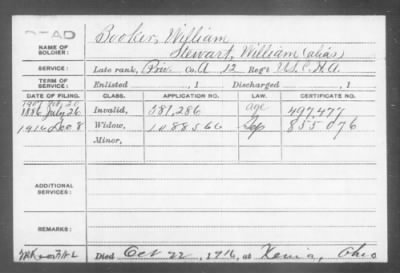 Booker, William
NAME OF SOLDIER: Stewart, William (alias)
SERVICE: Late rank, Priv. Co. A 12 Reg't U.S.C.H.A.
TERM OF SERVICE: Enlisted , 1 Discharged , 1
DATE OF FILING. CLASS. APPLICATION NO. LAW. CERTIFICATE NO.
1886 July 26 Invalid, 581,286 age 497,477
1916 Dec 8 Widow, 1088566 855076
Minor,
ADDITIONAL SERVICES:
REMARKS:
Died Oct 22, 1916, at Xenia, Ohio